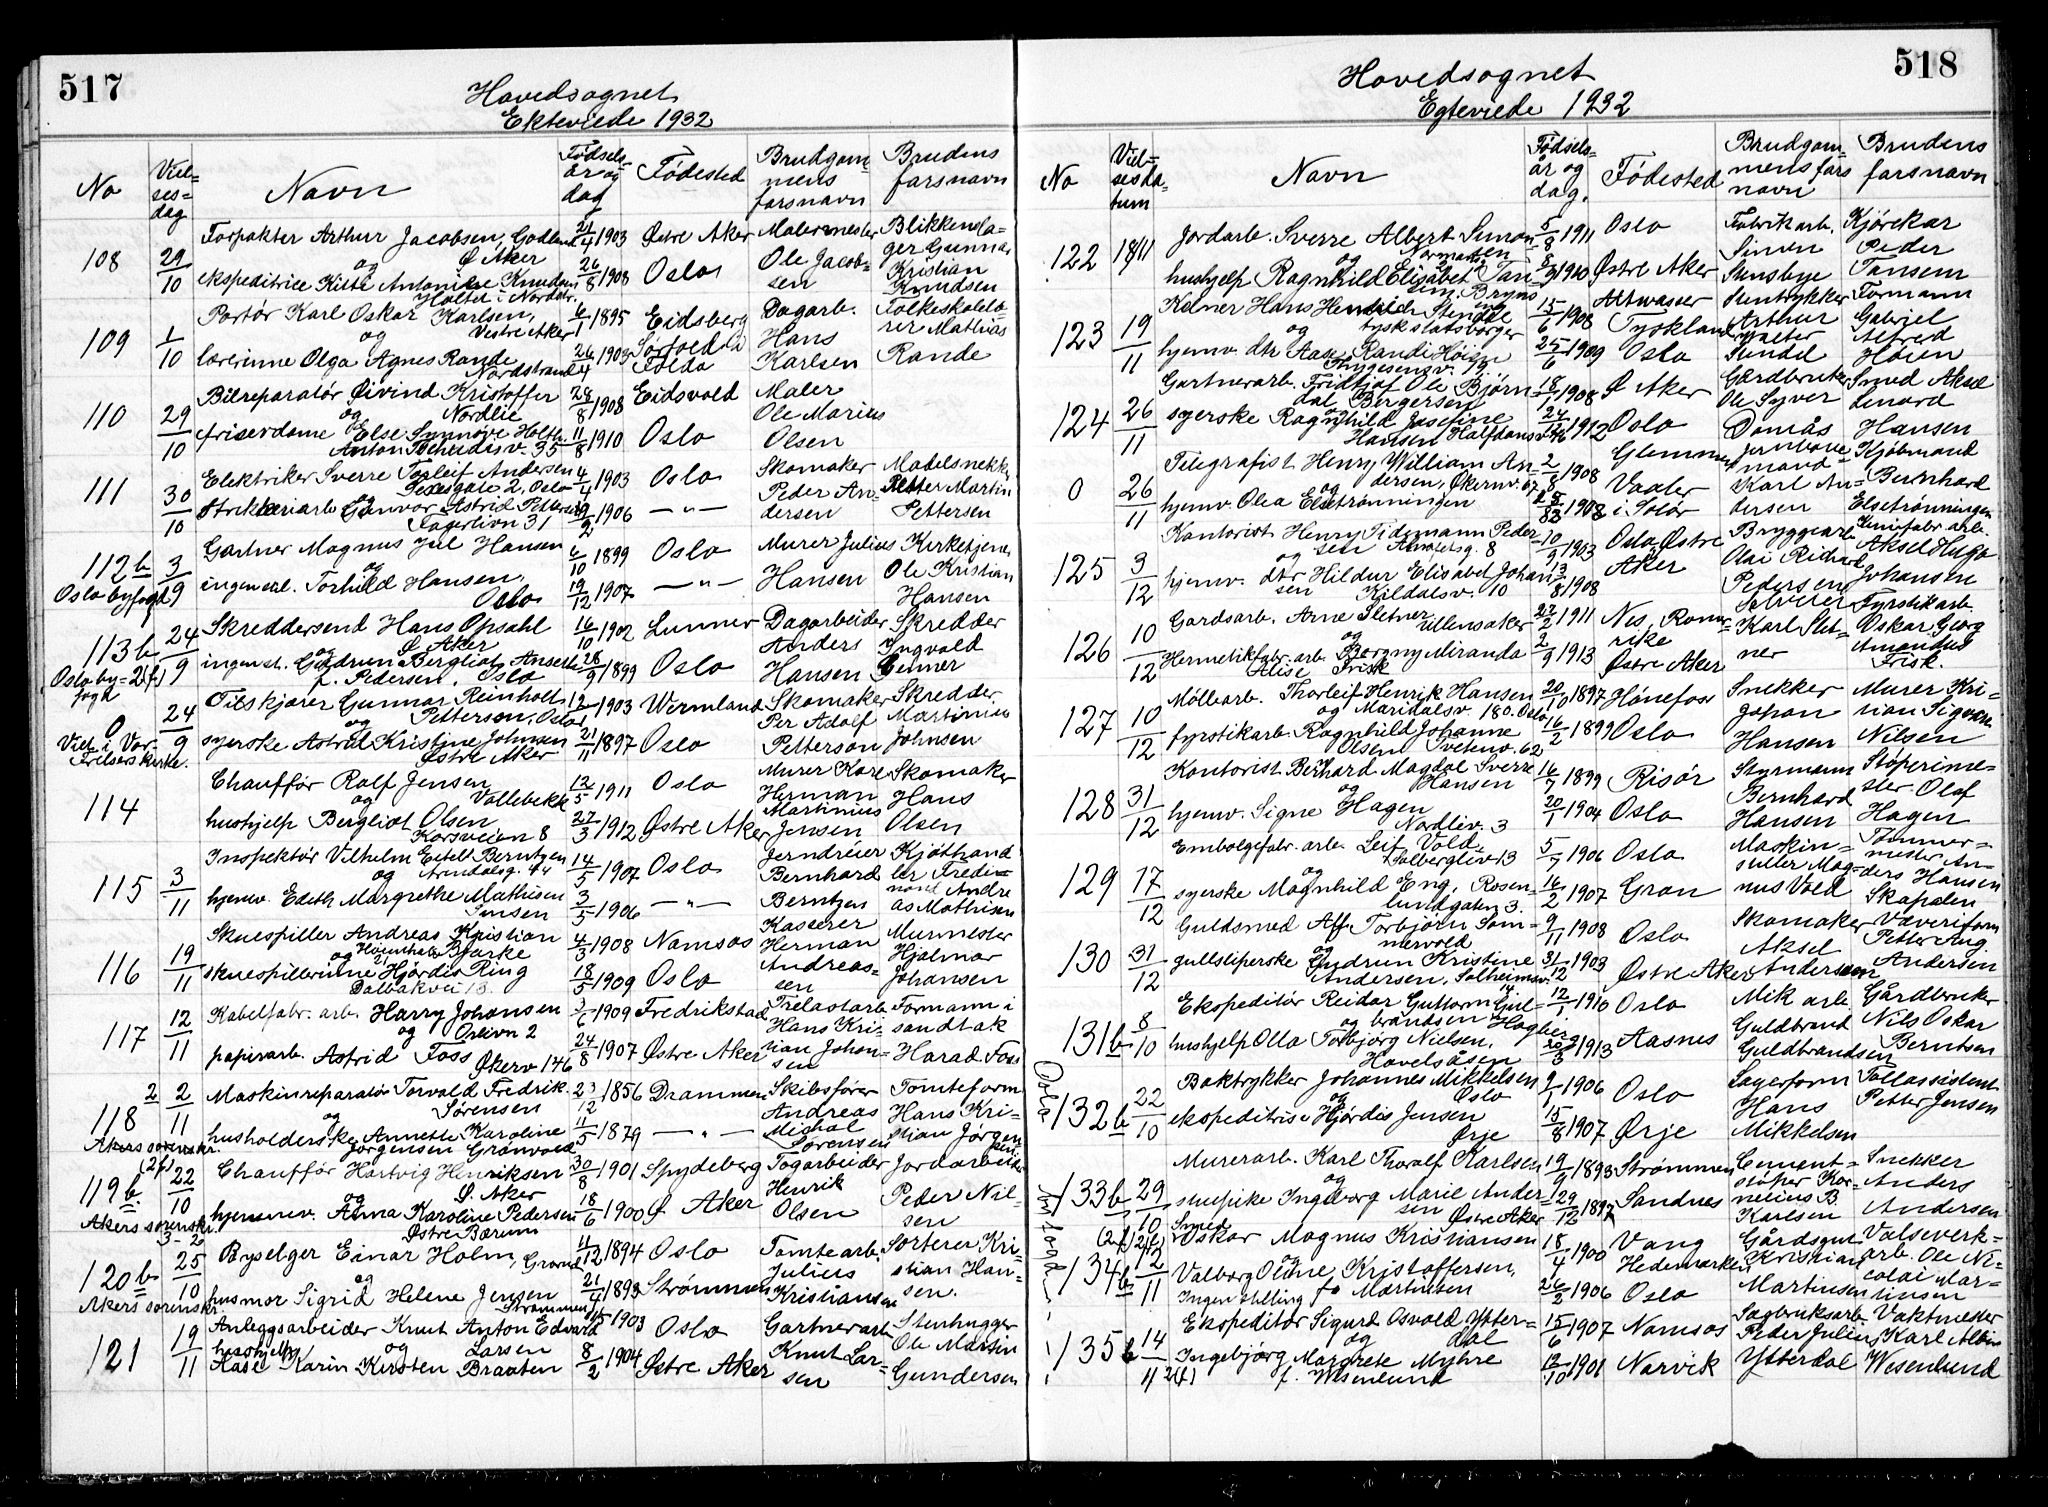 517
Hovedsognet
Ekteviede 1932
No
Viel-
ses-
dag
Navn
Fødsels-
år og
dag
Fødested
Brudgom-
mens
farsnavn
Brudens
farsnavn
108
29/10
Forpakter Arthur Jacobsen, Godlund
Ø Aker
og
ekspeditrice Kitte Antonike Knudsen
21/4 1903
26/8 1908
Østre Aker
Oslo
Malermester
Ole Jacob-
sen
Blikkensla-
ger Gunnar
Kristian
Knudsen
109
1/10
Portør Karl Oskar Karlsen,
og Vestre Aker
lærerinne Olga Agnes Rande
Nordstrand
6/1 1895
26/4 1903
Eidsberg
Folda
Dagarb.
Hans
Karlsen
Folkeskolelæ-
rer Mathias
Rande
110
29/10
Bilreparatør Øivind Kristoffer
og Nordlie
friserdame Else Synnøve Holth
Anton Schultsv. 35
28/8 1908
11/8 1910
Eidsvold
Oslo
Maler
Ole Marius
Olsen
111
30/10
Elektriker Sverre Torleif Andersen
og Sexesgate 2, Oslo
Strikkeriarb Gunvor Astrid Pettersen
Fagerlivn 31
4/4 1903
1906
Oslo
— " —
Skomaker
Peder An-
dersen
Modelsnekke
Petter Martin
Pettersen
112 b
3/9
Oslo byfogd
Gartner Magnus Jul Hansen
og
ingen stil. Torhild Hansen,
Oslo
6/10 1899
19/12 1907
Oslo
— " —
Murer Julius
Hansen
Kirketjener
Ole Kristian
Hansen
113 b
24/9
Oslo by-
fogd
Skreddersvend Hans Opsahl
Ø. Aker
ingen st. Gudrun Bergliot Anserth
f. Pedersen, Oslo
16/10 1902
28/9 1899
Lunner
Oslo
Dagarbeider
Anders
Hansen
Skredder
Ingvald
Geiner
0
24/9
Viet i Vor-
Frelsers kirke.
Tilskjærer Gunnar Reinholt
og Petterson, Oslo
syerske Astrid Kristine Johnsen
Østre Aker
1903
21/11 1897
Wermland
Oslo
Skomaker
Per Adolf
Petterson
Skredder
Martinius
Johnsen
114
Chauffør Rolf Jensen
og Vollebekk
hushjelp Bergliot Olsen
Korsveien 8
12/5 1911
27/3 1912
Oslo
Østre Aker
Murer Karl
Herman
Martinius
Jensen
Skomaker
Hans
Olsen
115
3/11
Inspektør Vilhelm Eitelt Berntzen
og Arendalsg. 44
hjemv. Edith Margrethe Mathisen
Jensen
14/5 1907
3/5 1906
Oslo
— " —
Jerndreier
Bernhard
Berntzen
Kjøthand
ler Fredi-
nand Andre
as Mathisen
116
19/11
Skuespiller Andreas Kristian
og Bjarke
skuespillerinne Hjørdis Ring
Dalbakvei 18
4/3 1908
18/5 1909
Namsos
Oslo
Kaserer
Herman
Andreas-
sen
Murmester
Hjalmar
Johansen
117
12/11
Kabelfabr. arb. Harry Johansen
og Oslivn 2
papirarb. Astrid Foss Økerv 146
3/6 1909
24/8 1907
Fredrikstad
Østre Aker
Trelastarb
Hans Kri-
tian Johan-
sen
Formann i
sandtak
Harad Foss
118
2 2/11
Akers sorenskr.
Maskinreparatør Torvald Fredrik
og Sørensen
husholderske Annette Karoline
Jørgensen Grønvold
23/12 1856
11/5 1879
Drammen
— " —
Skibsfører
Andreas
Michal
Sørensen
Tomteform
Hans Kri-
stian Jørgen
sen
119 b
22/10
Akers sorenskr.
Chauffør Hartvig Henriksen
og Ø. Aker
hjemmev. Anna Karoline Pedersen
Østre Bærum
30/8 1901
18/6 1900
Spydeberg
Ø Aker
Togarbeider
Henrik
Olsen
Jordarbeider
Peder Nil-
sen
120 b
25/10
Akers sorenskr.
Bryselger Einar Holm, Grorud
og
husmor Sigrid Helene Jensen
Strømmen
11/12 1894
21/4 1893
Oslo
Strømmen
Tomtearb.
Julius
Kristiansen
Sorterer Kri-
stian Han-
sen.
121
19/11
Anleggsarbeider Knut Anton Edvard
og Larsen
hushjelp
Karin Kirsten Braaten
1903
8/2 1904
Oslo
Østre Aker
Gartnerarb
Knut Lar-
sen
Stenhugger
Ole Martin
Gundersen
518
Hovedsognet
Egteviede 1932
No
Viel-
sesda-
tum
Navn
Fødsels-
år og
dag.
Fødested
Brudgom-
mens fars
navn
Brudens
farsnavn
122
18/11
Jordarb. Sverre Albert Simon
og
hushjelp Ragnhild Elisabet Tan-
sem, Bryns
5/8 1911
1910
Oslo
Østre Aker
Fabrikarb.
Simen
Sunsbye
Kjørekar
Peder
Tansem
123
19/11
Kelner Hans Hendrich Stendde
og tysk statsborger
hjemv. dtr Aase Randi Høien
Thygesensv. 19
15/6 1908
25/6 1909
Altwasser
Tyskland
Oslo
Arthur
Formann
Gabriel
Alfred
Høien
124
26/11
Gartnerarb. Fridtjof Ole Bjørn
dal Bergersen
syerske Ragnhild Josefine
Hansen Halfdansv. 46
1908
24/12 1912
Ø Aker
Oslo
Gårdbruker
Ole Syver
Smed Aksel
Lenard
Hansen
0
26/11
Telegrafist Henry William An-
og dersen, Økernv. 67
hjemv Olea Elsetrønningen
2/2 1908
1908
Glemmen
Vaaler
i Solør
Jernbane
mand
Karl An-
dersen
Kjøbmand
Bernhard
Elsetrønningen
125
3/12
Kontorist Henry Tidemann Peder
og sen
hjemv. dtr Hildur Elisabet Johan
sen Kildalsv. 10
10/9 1903
13/8 1908
Oslo Østre
Aker
Bryggearb
Olai Richard
Pedersen
Kemifabr arb.
Aksel Hugo
Johansen
126
10/12
Gardsarb. Arne Sletner
og Ullensaker
Hermetikfabr. arb. Borgny Miranda
Elise Frisk
27/2 1911
2/9 1913
Nes, Rome-
rike
Østre Aker
Selveier
Karl Slet-
ner
Fyrstikarb.
Oskar Georg
Amandus
Frisk.
127
10/12
Møllearb. Thorleif Henrik Hansen
og Maridalsv. 180. Oslo
fyrstikarb. Ragnhild Johanne
Olsen Tvetenv. 62
20/10 1897
16/2 1899
Hønefoss
Oslo
Snekker
Johan
Hansen
Murer Kri-
tian Sigvart
Nilsen
128
31/12
Kontorist Bernhard Magdal Sverre
og Hansen
hjemv. Signe Hagen
Nordliv. 3
16/7 1899
20/1 1904
Risør
Oslo
Styrmann
Bernhard
Hansen
Støperime-
ster Olaf
Hagen
129
17/12
Emballagefabr. arb. Leif Vold,
og Solbergliv 13
syerske Magnhild Eng, Rosen-
lundgaten 3.
5/7 1906
16/2 1907
Oslo
Gran
Maskin-
setter Mag-
nus Vold
Tømmer-
mester An-
ders Hansen
Skapalen
130
31/12
Guldsmed Alf Torbjørn Som-
og mervold
gullsliperske Gudrun Kristine
Andersen, Solheimsv.
9/11 1908
31/12 1903
Oslo
Østre Aker
Skomaker
Aksel
Andersen
Væveriform
Petter Aug
Andersen
131 b
8/10
Ekspeditør Reidar Guttorm Gul-
og brandsen
hushjelp Olla Torbjørg Nielsen,
Hovelsåsen
12/1 1910
1913
Oslo
Aasnes
Mik arb
Guldbrand
Guldbrandsen
Gårdbruker
Nils Oskar
Berntsen
132 b
22/10
Oslo
Boktrykker Johannes Mikkelsen
og Oslo
ekspeditrice Hjørdis Jensen
Ørje
9/1 1906
15/8 1907
Oslo
Ørje
Lagerform
Hans
Mikkelsen
Tollassistent
Petter Jensen
133 b
29/10
Murerarb. Karl Thoralf Karlsen
og
stuepike Ingeborg Marie Ander-
sen Østre Aker
19/9 1893
29/12 1897
Strømmen
Sandnes
Cement-
støper Kor-
nelius B
Karlsen
Snekker
Anders
Andersen
134 b
12/11
byfogd
Smed
Oskar Magnus Kristiansen
og
Valborg Oline Kristoffersen,
Ingen stilling f. Martinsen
18/4 1900
26/2 1906
Vang
Hedemarken
Oslo
Gårdsgut
Kristian
Martinsen
Valseverk-
arb. Ole Ni-
colai Mar-
tinsen
135 b
14/11
Ekspeditør Sigurd Osvald Ytter-
og dal
Ingebjørg Margrete Myhre
f. Wesenlund
15/6 1907
12/10 1901
Namsos
Narvik
Sagbruksarb.
Peder Julius
Ytterdal
Vaktmester
Karl Albin
Wesenlund